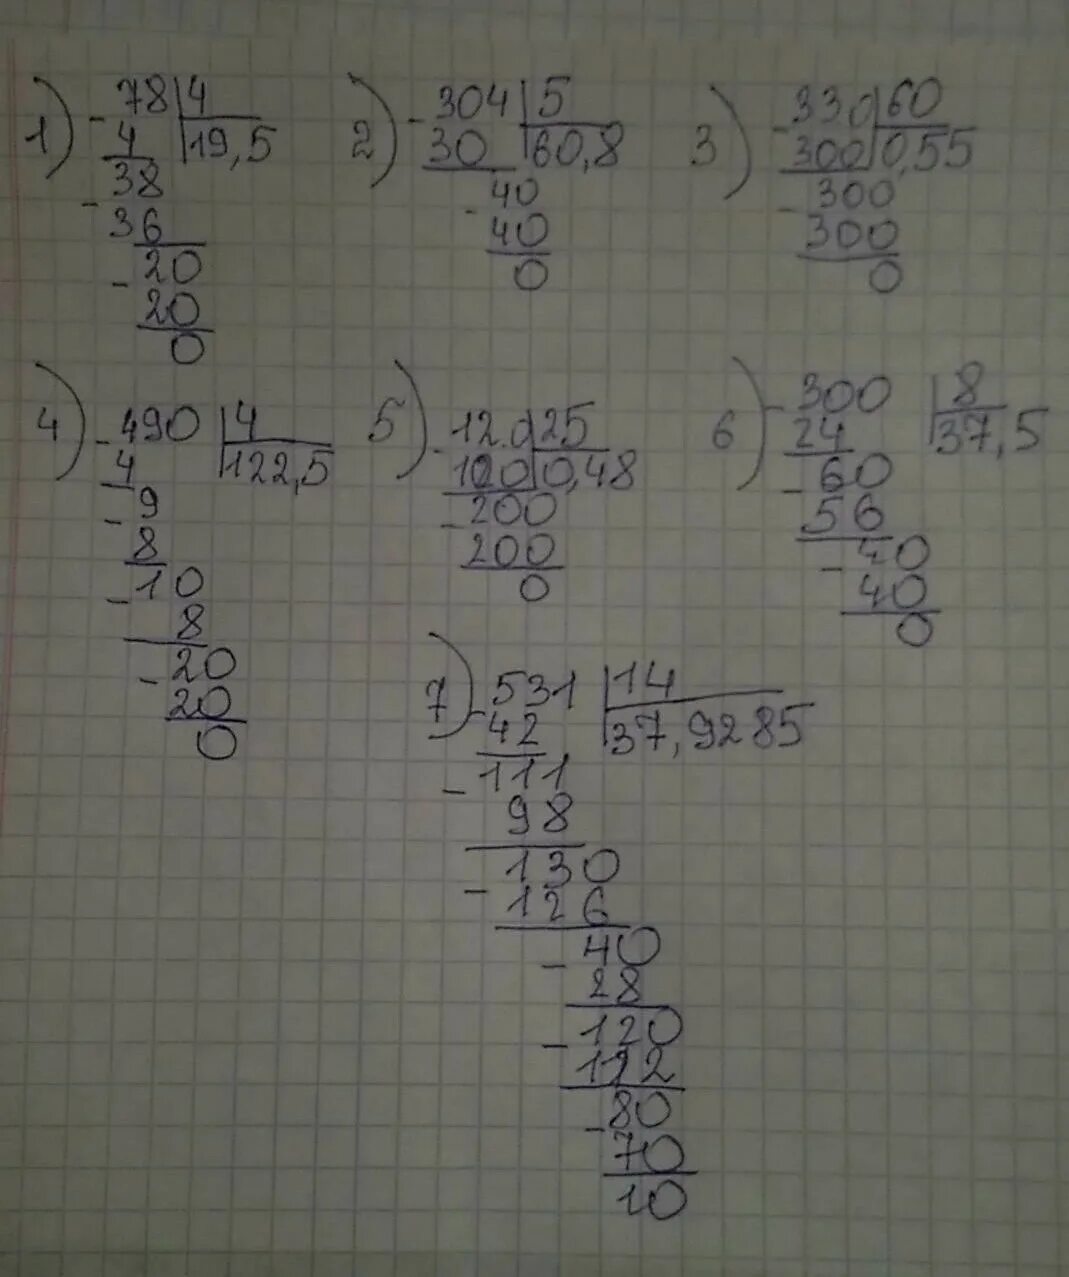 1) - 78 | 4
4 | 19,5
- 38
36
- 20
20
0
2) - 304 | 5
30 | 60,8
- 40
40
0
3) - 330 | 60
300 | 0,55
- 300
300
0
4) - 490 | 4
4 | 122,5
- 9
8
- 10
8
- 20
20
0
5) - 12.0 | 25
100 | 0,48
- 200
200
0
6) - 300 | 8
24 | 37,5
- 60
56
- 40
40
0
7) - 531 | 14
42 | 37,9285
- 111
98
- 130
126
- 40
28
- 120
112
- 80
70
10